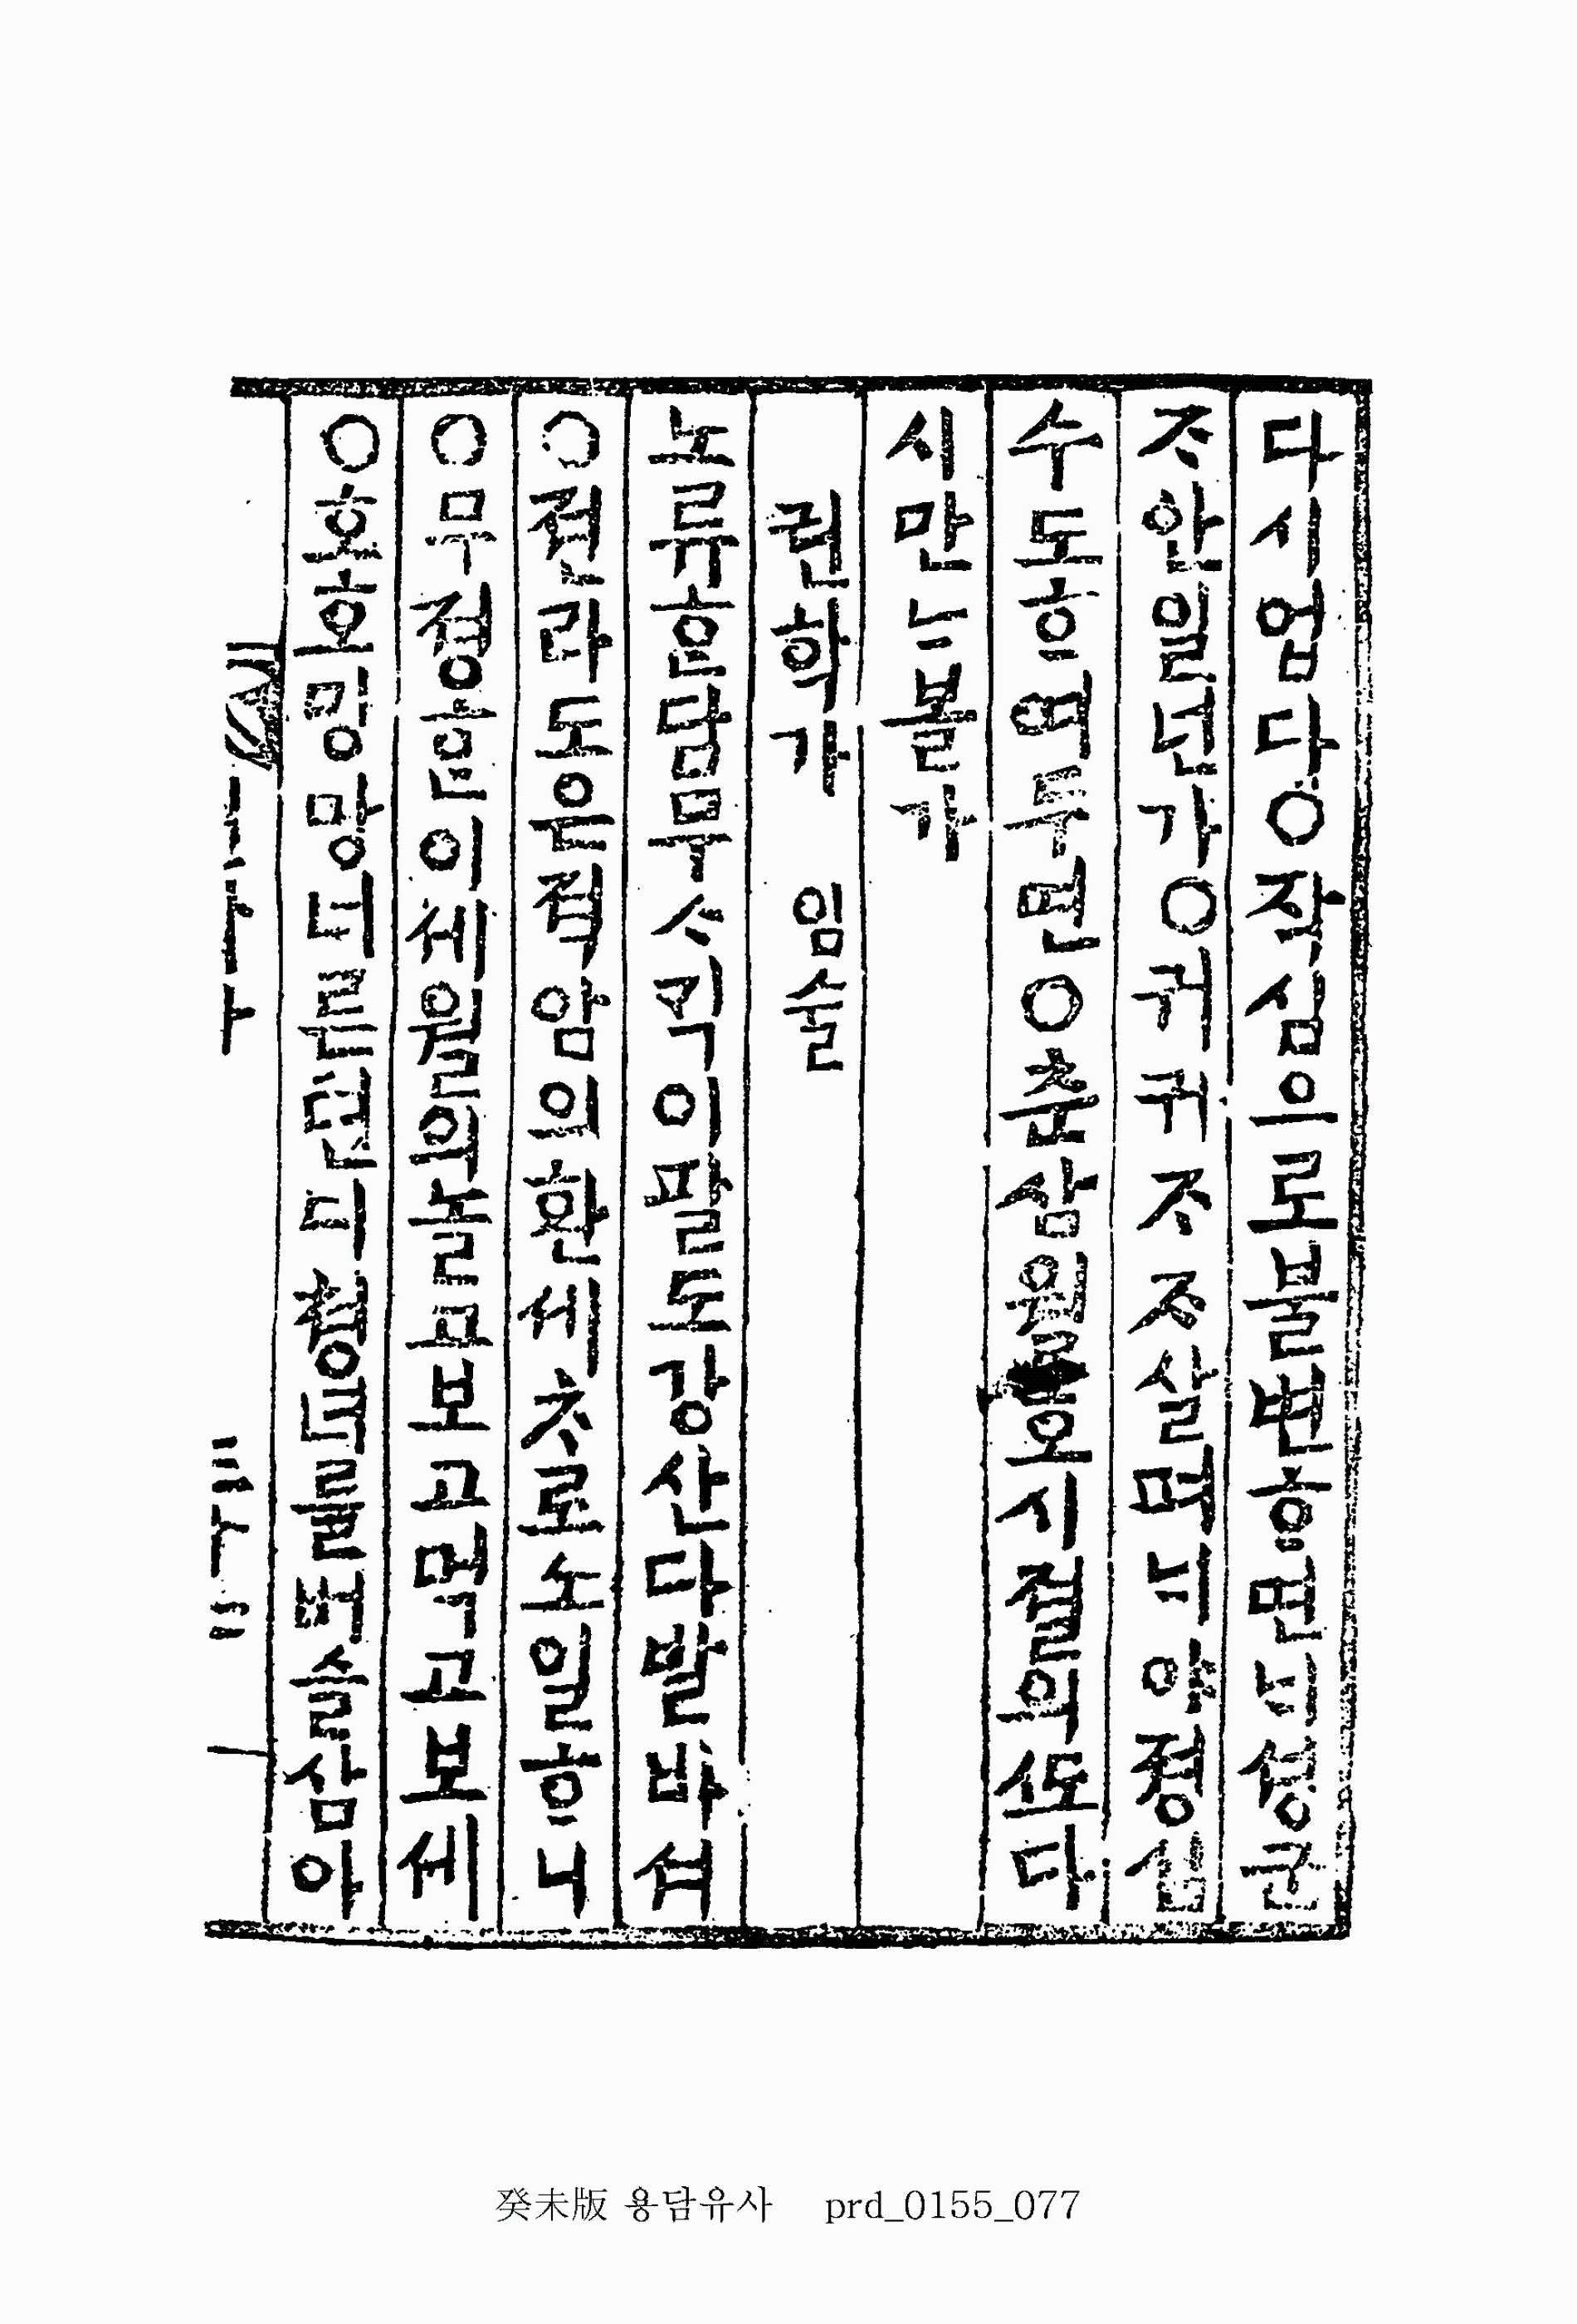 다시업다○작심으로불변ᄒᆞ면ᄂᆡ셩군
ᄌᆞ안일넌가○귀귀ᄌᆞᄌᆞ살펴ᄂᆡ야졍심
수도ᄒᆞ여두면○춘삼월호시졀의ᄯᅩ다
시만ᄂᆞ볼가
권학가 임술
노류한담무ᄉᆞᄀᆡᆨ이팔도강산다발바셔
○젼라도은젹암의환세ᄎᆞ로소일ᄒᆞ니
○무졍ᄒᆞᆫ이세월의놀고보고먹고보세
○호호망망너른텬디쳥녀를벗슬삼아
癸未版 용담유사 prd_0155_077